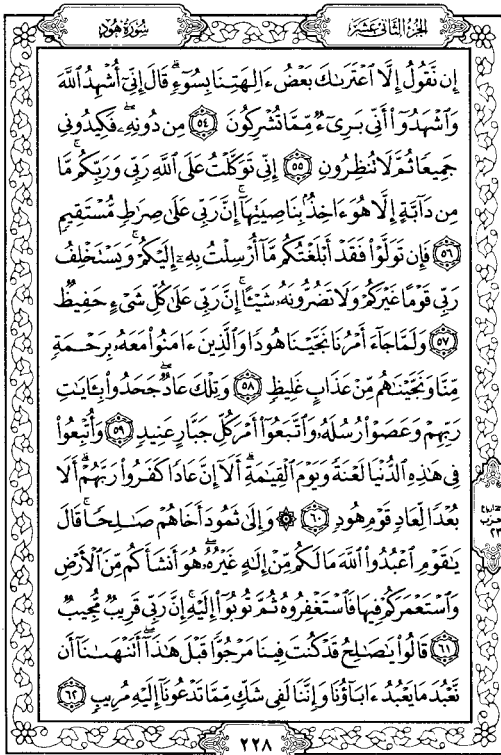 سُورَةُ هُودٍ
الجُزْءُ الثَّانِي عَشَرَ
إِن نَّقُولُ إِلَّا ٱعْتَرَىٰكَ بَعْضُ ءَالِهَتِنَا بِسُوٓءٍ ۗ قَالَ إِنِّىٓ أُشْهِدُ ٱللَّهَ
وَٱشْهَدُوٓا۟ أَنِّى بَرِىٓءٌ مِّمَّا تُشْرِكُونَ ٥٤ مِن دُونِهِۦ ۖ فَكِيدُونِى
جَمِيعًا ثُمَّ لَا تُنظِرُونِ ٥٥ إِنِّى تَوَكَّلْتُ عَلَى ٱللَّهِ رَبِّى وَرَبِّكُم ۚ مَّا
مِن دَآبَّةٍ إِلَّا هُوَ ءَاخِذٌۢ بِنَاصِيَتِهَآ ۚ إِنَّ رَبِّى عَلَىٰ صِرَٰطٍ مُّسْتَقِيمٍ
٥٦ فَإِن تَوَلَّوْا۟ فَقَدْ أَبْلَغْتُكُم مَّآ أُرْسِلْتُ بِهِۦٓ إِلَيْكُمْ ۚ وَيَسْتَخْلِفُ
رَبِّى قَوْمًا غَيْرَكُمْ وَلَا تَضُرُّونَهُۥ شَيْـًٔا ۚ إِنَّ رَبِّى عَلَىٰ كُلِّ شَىْءٍ حَفِيظٌ
٥٧ وَلَمَّا جَآءَ أَمْرُنَا نَجَّيْنَا هُودًا وَٱلَّذِينَ ءَامَنُوا۟ مَعَهُۥ بِرَحْمَةٍ
مِّنَّا وَنَجَّيْنَٰهُم مِّنْ عَذَابٍ غَلِيظٍ ٥٨ وَتِلْكَ عَادٌ ۖ جَحَدُوا۟ بِـَٔايَٰتِ
رَبِّهِمْ وَعَصَوْا۟ رُسُلَهُۥ وَٱتَّبَعُوٓا۟ أَمْرَ كُلِّ جَبَّارٍ عَنِيدٍ ٥٩ وَأُتْبِعُوا۟
فِى هَٰذِهِ ٱلدُّنْيَا لَعْنَةً وَيَوْمَ ٱلْقِيَٰمَةِ ۗ أَلَآ إِنَّ عَادًا كَفَرُوا۟ رَبَّهُمْ ۗ أَلَا
بُعْدًا لِّعَادٍ قَوْمِ هُودٍ ٦٠ ۞ وَإِلَىٰ ثَمُودَ أَخَاهُمْ صَٰلِحًا ۚ قَالَ
يَٰقَوْمِ ٱعْبُدُوا۟ ٱللَّهَ مَا لَكُم مِّنْ إِلَٰهٍ غَيْرُهُۥ ۖ هُوَ أَنشَأَكُم مِّنَ ٱلْأَرْضِ
وَٱسْتَعْمَرَكُمْ فِيهَا فَٱسْتَغْفِرُوهُ ثُمَّ تُوبُوٓا۟ إِلَيْهِ ۚ إِنَّ رَبِّى قَرِيبٌ مُّجِيبٌ
٦١ قَالُوا۟ يَٰصَٰلِحُ قَدْ كُنتَ فِينَا مَرْجُوًّا قَبْلَ هَٰذَآ ۖ أَتَنْهَىٰنَآ أَن
نَّعْبُدَ مَا يَعْبُدُ ءَابَآؤُنَا وَإِنَّنَا لَفِى شَكٍّ مِّمَّا تَدْعُونَآ إِلَيْهِ مُرِيبٍ ٦٢
حزب
٢٣
٢٢٨